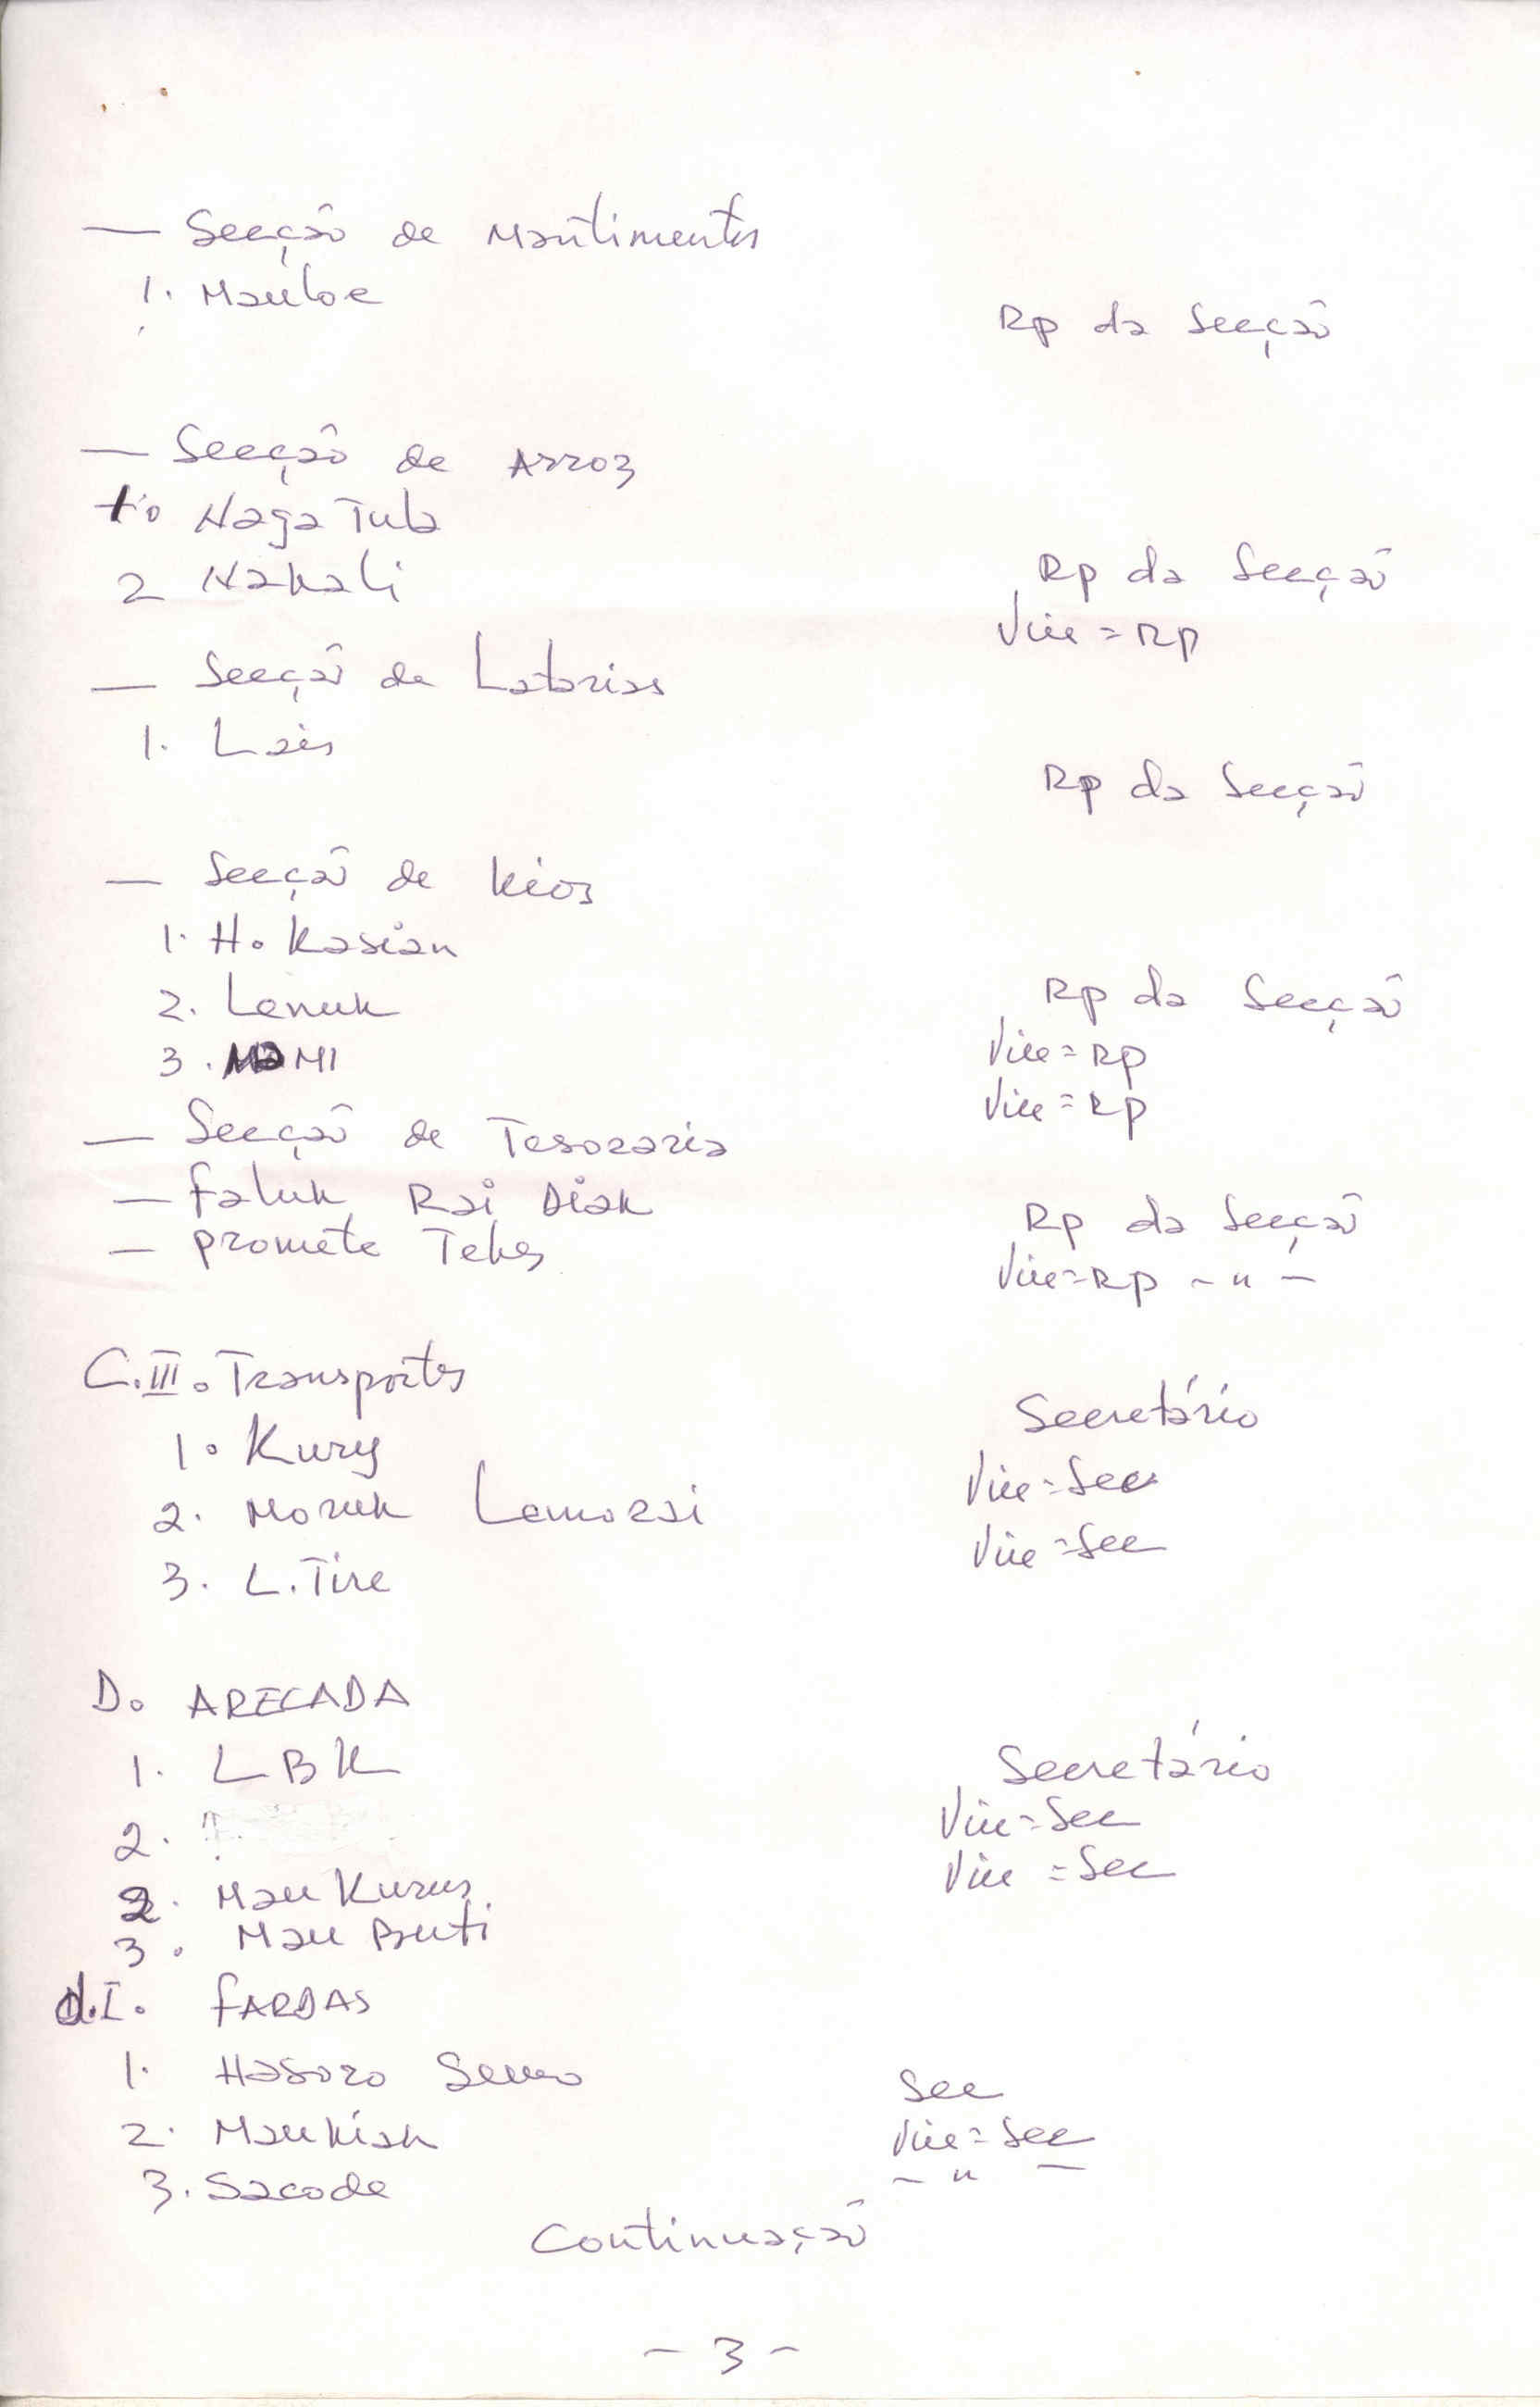 — Secção de Mantimentos
1. Mauloe
Rp da Secção
— Secção de Arroz
1. Naga Tula
2 Nakali
Rp da Secção
Vice = Rp
— Secção de Latarias
1. Lais
Rp da Secção
— Secção de Kios
1. H. Kasian
2. Lenuk
3. MI
Rp da Secção
Vice = Rp
Vice = Rp
— Secção de Tesoraria
— Faluk Rai Diak
— Promete Tekes
Rp da Secção
Vice = Rp — " —
C.III. Transportes
1. Kury
2. Moruk Lemorai
3. L. Tire
Secretário
Vice = Sec
Vice = Sec
D. ARECADA
1. LBK
2. ?
2. Mau Kurus
3. Mau Buti
Secretário
Vice = Sec
Vice = Sec
d.I. FARDAS
1. Hasoro
2. Maukiak
3. Sacode
Sec
Vice = Sec
— " —
Continuação
- 3 -